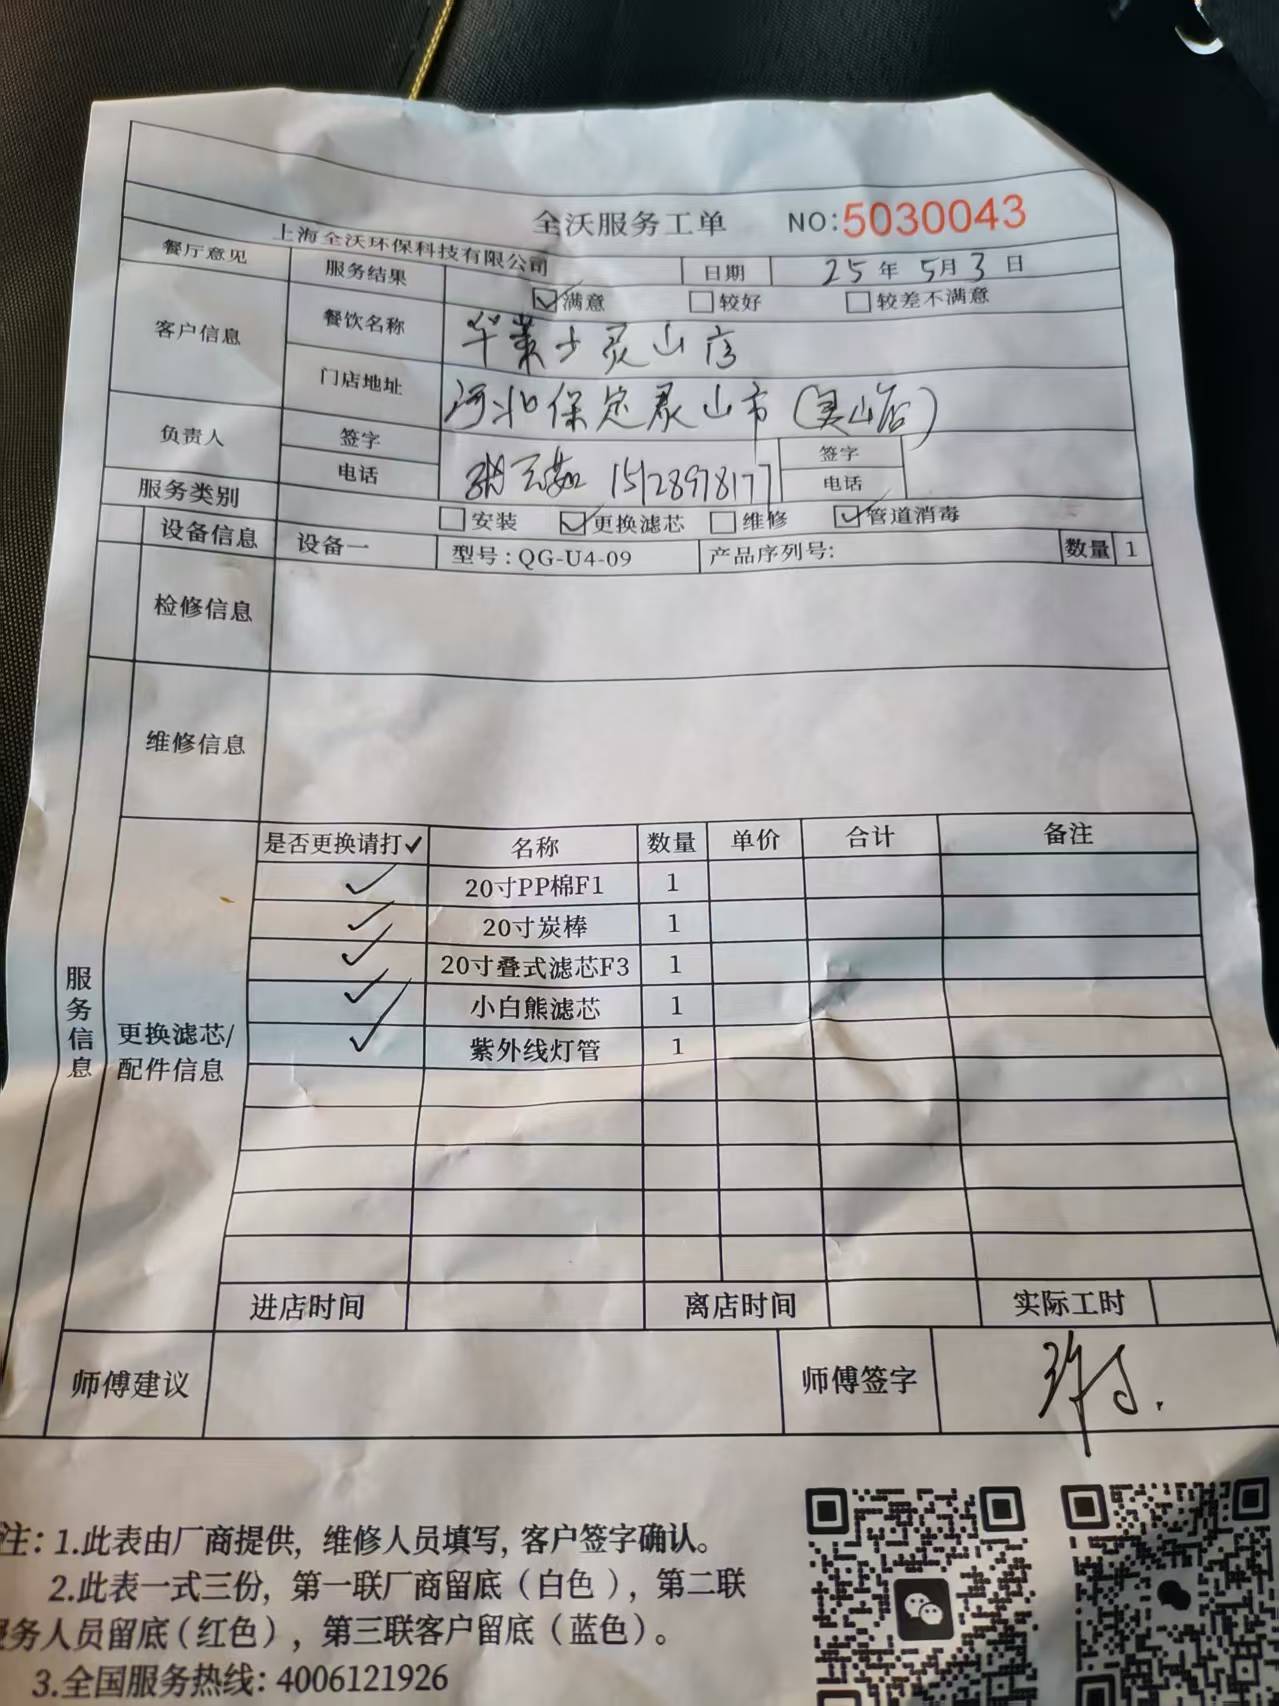 全沃服务工单 NO:5030043
上海全沃环保科技有限公司 日期 25年5月3日
餐厅意见 服务结果 满意 较好 较差不满意
客户信息 餐饮名称 华莱士灵山店
门店地址 河北保定灵山市(灵山店)
负责人 签字 签字
电话 15128978177 电话
服务类别 安装 更换滤芯 维修 管道消毒
设备信息 设备一 型号:QG-U4-09 产品序列号: 数量 1
检修信息
维修信息
服务信息
更换滤芯/
配件信息
是否更换请打✓ 名称 数量 单价 合计 备注
✓ 20寸PP棉F1 1
✓ 20寸炭棒 1
✓ 20寸叠式滤芯F3 1
✓ 小白熊滤芯 1
✓ 紫外线灯管 1
进店时间 离店时间 实际工时
师傅建议 师傅签字
注:1.此表由厂商提供,维修人员填写,客户签字确认。
2.此表一式三份,第一联厂商留底(白色),第二联
服务人员留底(红色),第三联客户留底(蓝色)。
3.全国服务热线:4006121926